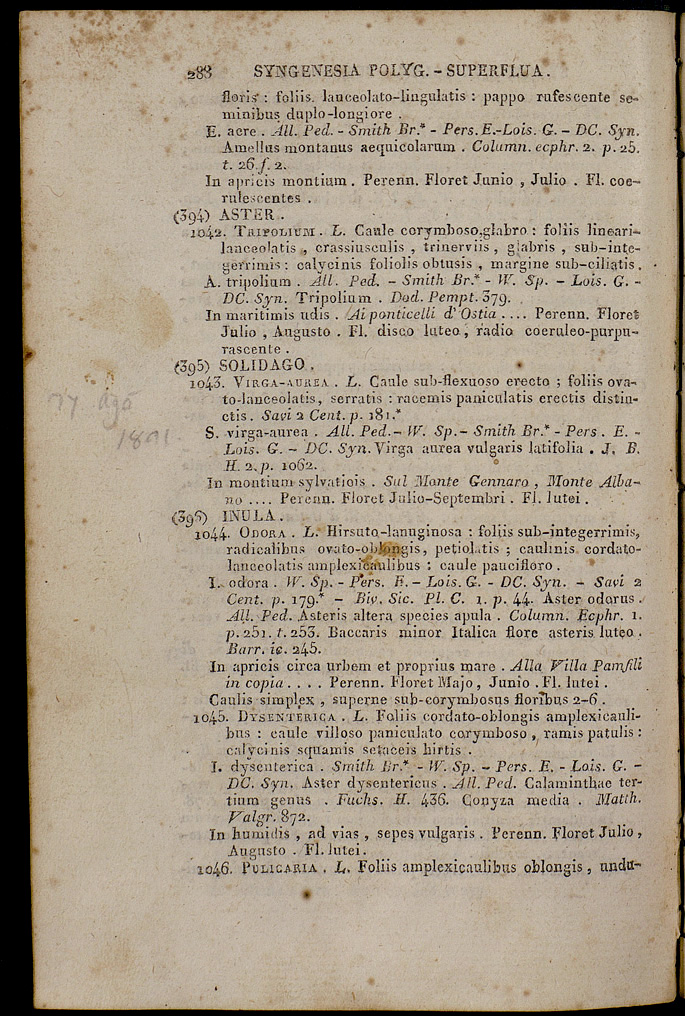 288 SYNGENESIA POLYG. - SUPERFLUA.
floris : foliis. lanceolato-lingulatis : pappo rufescente se-
minibus duplo-longiore .
E. acre . All. Ped. - Smith Br.* - Pers. E.-Lois. G. - DC. Syn.
Amellus montanus aequicolarum . Column. ecphr. 2. p. 25.
t. 26. f. 2.
In apricis montium . Perenn. Floret Junio , Julio . Fl. coe-
rulescentes .
(394) ASTER .
1042. TRIPOLIUM . L. Caule corymboso,glabro : foliis lineari-
lanceolatis , crassiusculis , trinerviis , glabris , sub-inte-
gerrimis : calycinis foliolis obtusis , margine sub-ciliatis .
A. tripolium . All. Ped. - Smith Br.* - W. Sp. - Lois. G. -
DC. Syn. Tripolium . Dod. Pempt. 379.
In maritimis udis . Ai ponticelli d'Ostia .... Perenn. Floret
Julio , Augusto . Fl. disco luteo , radio coeruleo-purpu-
rascente .
(395) SOLIDAGO .
1043. VIRGA-AUREA . L. Caule sub-flexuoso erecto ; foliis ova-
to-lanceolatis, serratis : racemis paniculatis erectis distin-
ctis . Savi 2 Cent. p. 181.*
S. virga-aurea . All. Ped.- W. Sp.- Smith Br.* - Pers . E. -
Lois. G. - DC. Syn. Virga aurea vulgaris latifolia . J. B.
H. 2. p. 1062.
In montium sylvaticis . Sul Monte Gennaro , Monte Alba-
no .... Perenn. Floret Julio-Septembri . Fl. lutei .
(396) INULA .
1044. ODORA . L. Hirsuto-lanuginosa : foliis sub-integerrimis,
radicalibus ovato-oblongis, petiolatis ; caulinis cordato-
lanceolatis amplexicaulibus : caule paucifloro .
I. odora . W. Sp. - Pers. E. - Lois. G. - DC. Syn. - Savi 2
Cent. p. 179.* - Biv. Sic. Pl. C. 1. p. 44. Aster odorus .
All. Ped. Asteris altera species apula . Column. Ecphr. 1.
p. 251. t. 253. Baccaris minor Italica flore asteris luteo .
Barr. ic. 245.
In apricis circa urbem et proprius mare . Alla Villa Pamfili
in copia .... Perenn. Floret Majo , Junio . Fl. lutei .
Caulis simplex , superne sub-corymbosus floribus 2-6 .
1045. DYSENTERICA . L. Foliis cordato-oblongis amplexicauli-
bus : caule villoso paniculato corymboso , ramis patulis :
calycinis squamis setaceis hirtis .
I. dysenterica . Smith Br.* - W. Sp. - Pers. E. - Lois. G. -
DC. Syn. Aster dysentericus . All. Ped. Calaminthae ter-
tium genus . Fuchs. H. 436. Conyza media . Matth.
Valgr. 872.
In humidis , ad vias , sepes vulgaris . Perenn. Floret Julio ,
Augusto . Fl. lutei .
1046. PULICARIA . L. Foliis amplexicaulibus oblongis , undu-